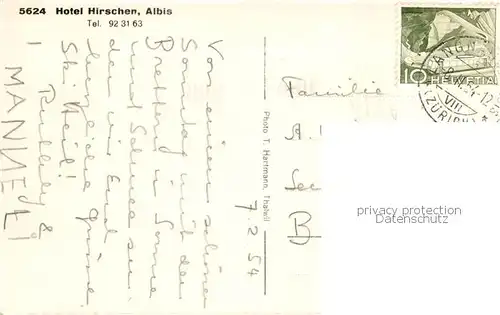 5624 Hotel Hirschen, Albis
Tel. 92 31 63
Von einem schönen
Sonntag mit den
Brettern in Sonne
und Schnee
wir Euch
herzliche Grüsse
Ski Heil!
&
MANNELI
Photo T. Hartmann, Thalwil
7. 2. 54
Familie
A.
See
B
10
HELVETIA
VIII
(ZÜRICH)
privacy protection
www.delcampe.net